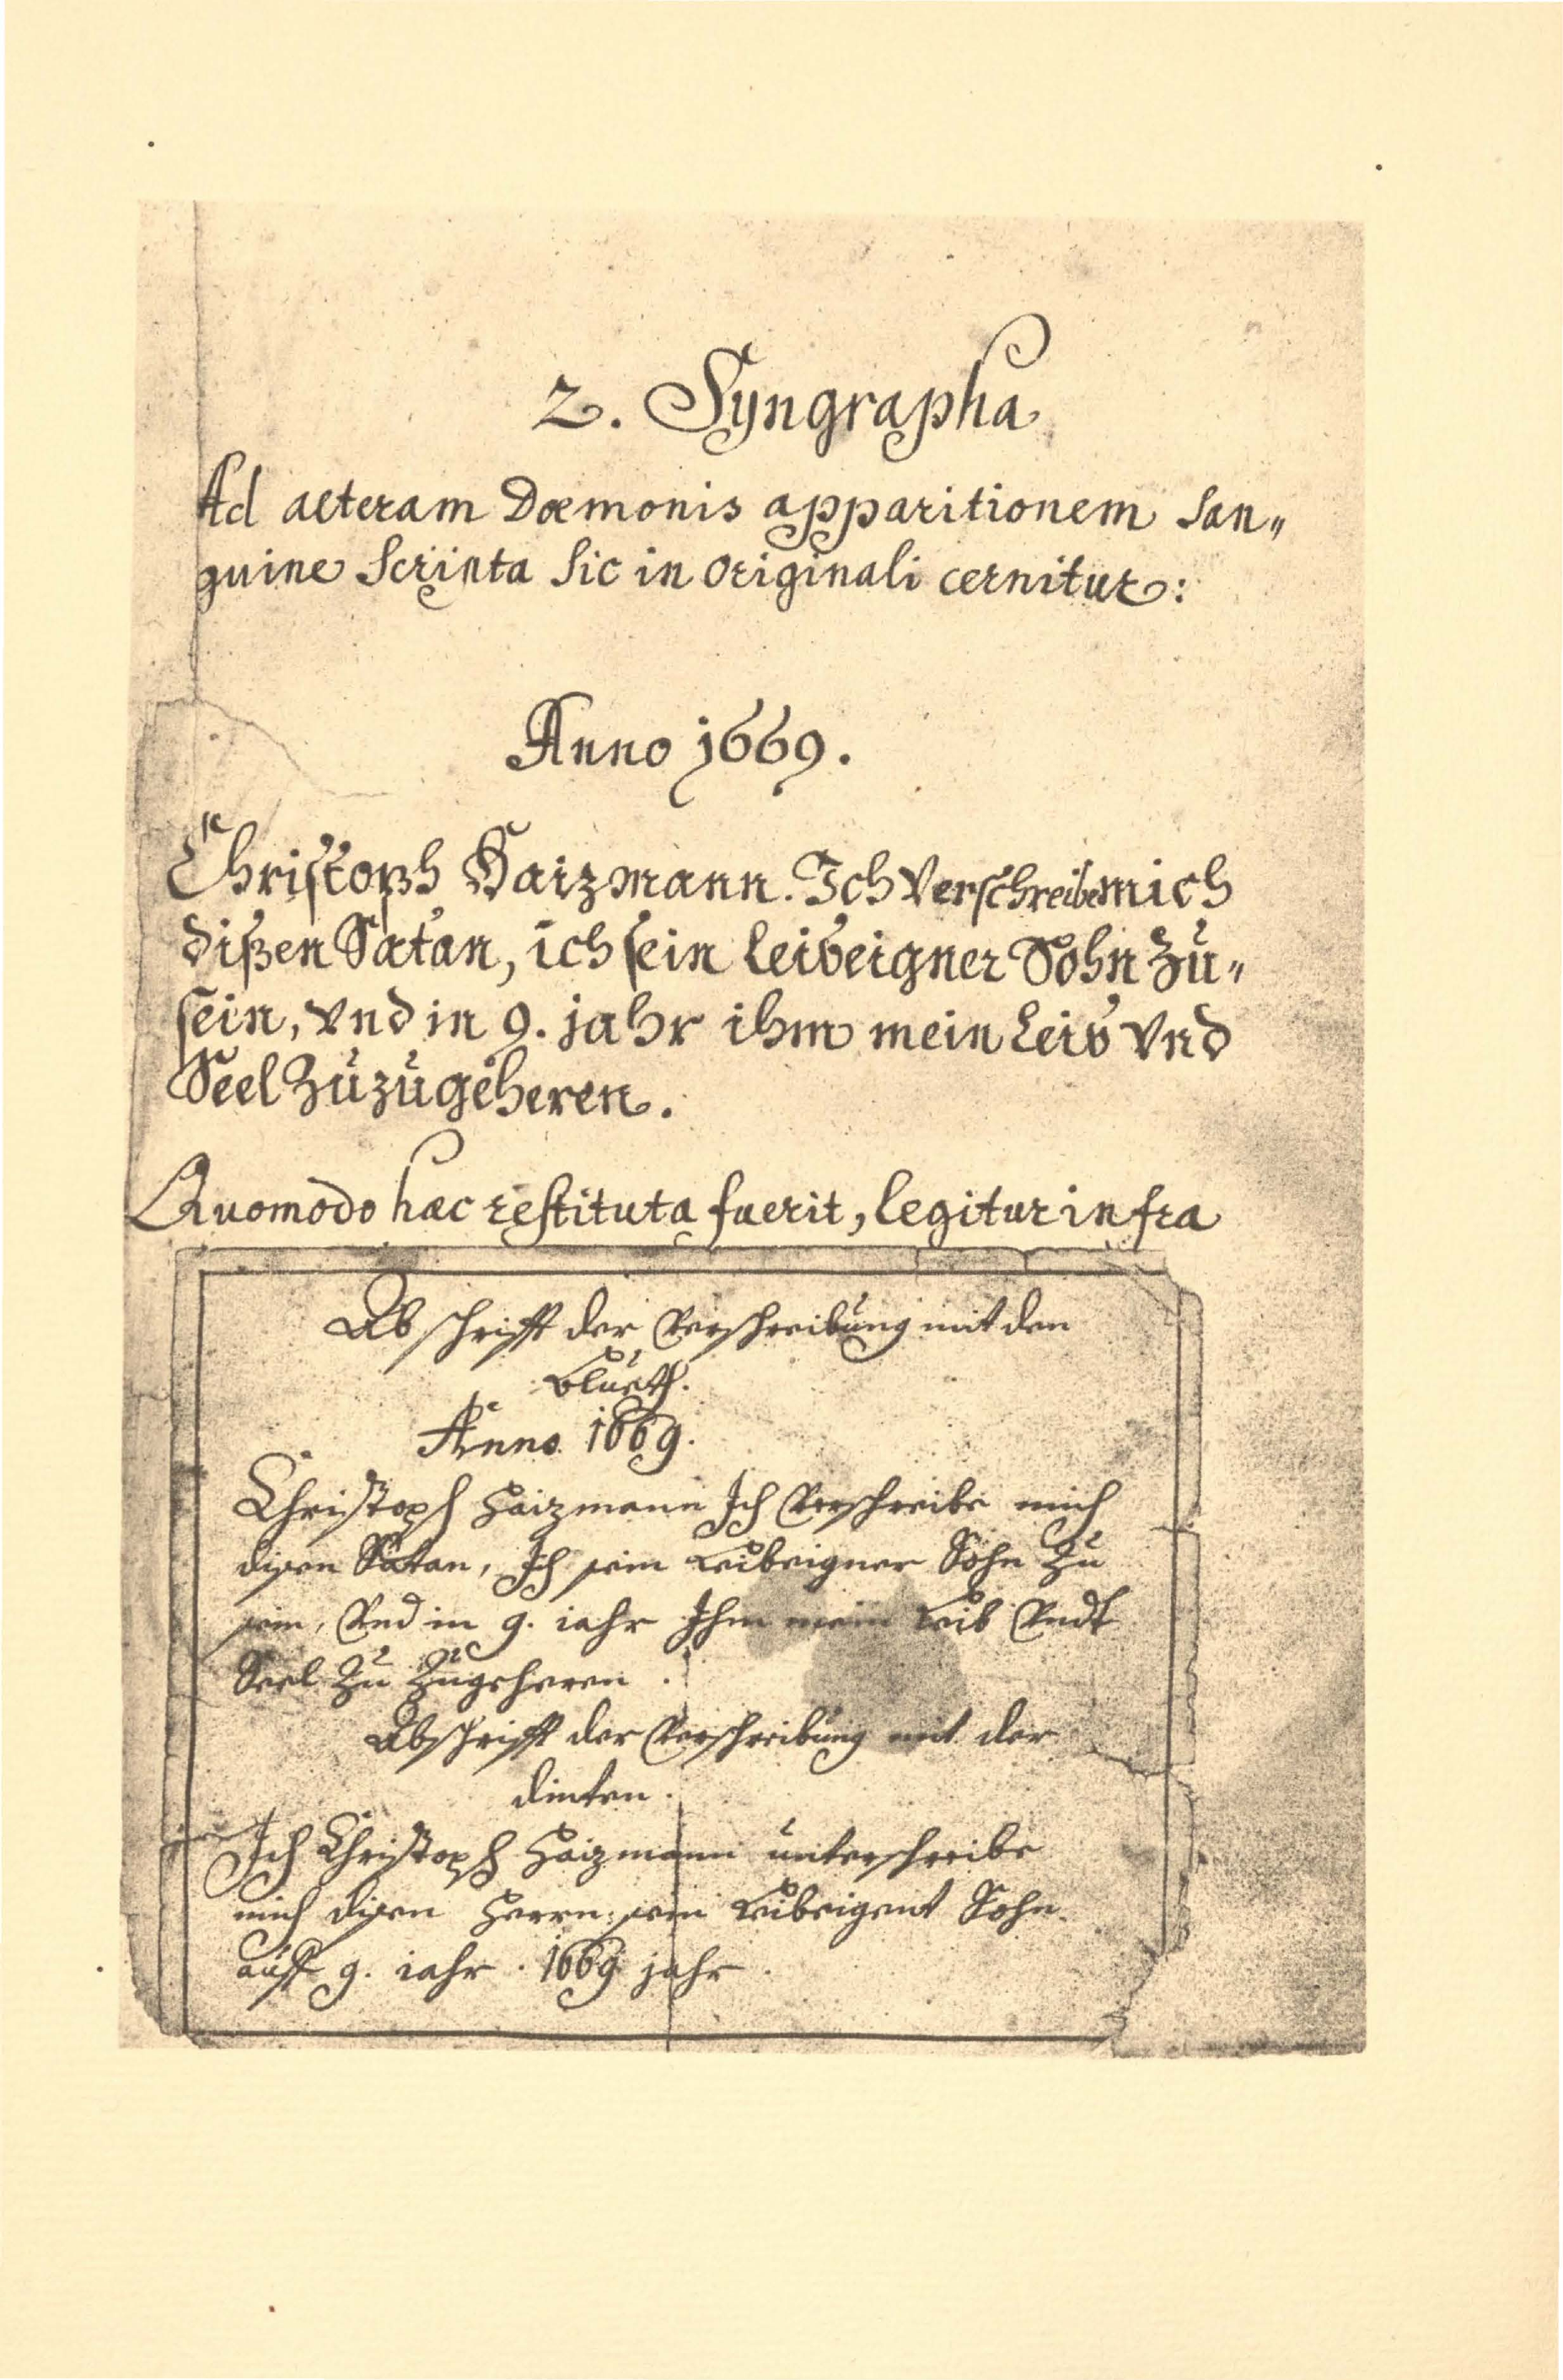 2. Syngrapha
Ad alteram Dæmonis apparitionem San„
guine Scripta Sic in Originali cernitur:
Anno 1669.
Christoph Haizmann. Ich Verschreibe mich
dißen Satan, ich sein leibeigner Sohn Zu„
sein, vnd in 9. jahr ihm mein Leib Vnd
Seel Zuzugeheren.
Quomodo hæc restituta fuerit, legitur infra
Abschrifft der Verschreibung mit den
Blueth.
Anno 1669.
Christoph Haizmann Ich Verschreibe mich
disen Satan, Ich sein Leibeigner Sohn Zu
sein, Vnd in 9. iahr Ihm mein Leib Vndt
Seel Zu Zugeheren.
Abschrifft der Verschreibung mit der
dinten.
Ich Christoph Haizmann unterschreibe
mich disen Herrn sein Leibeigent Sohn
auff 9. iahr. 1669 jahr.